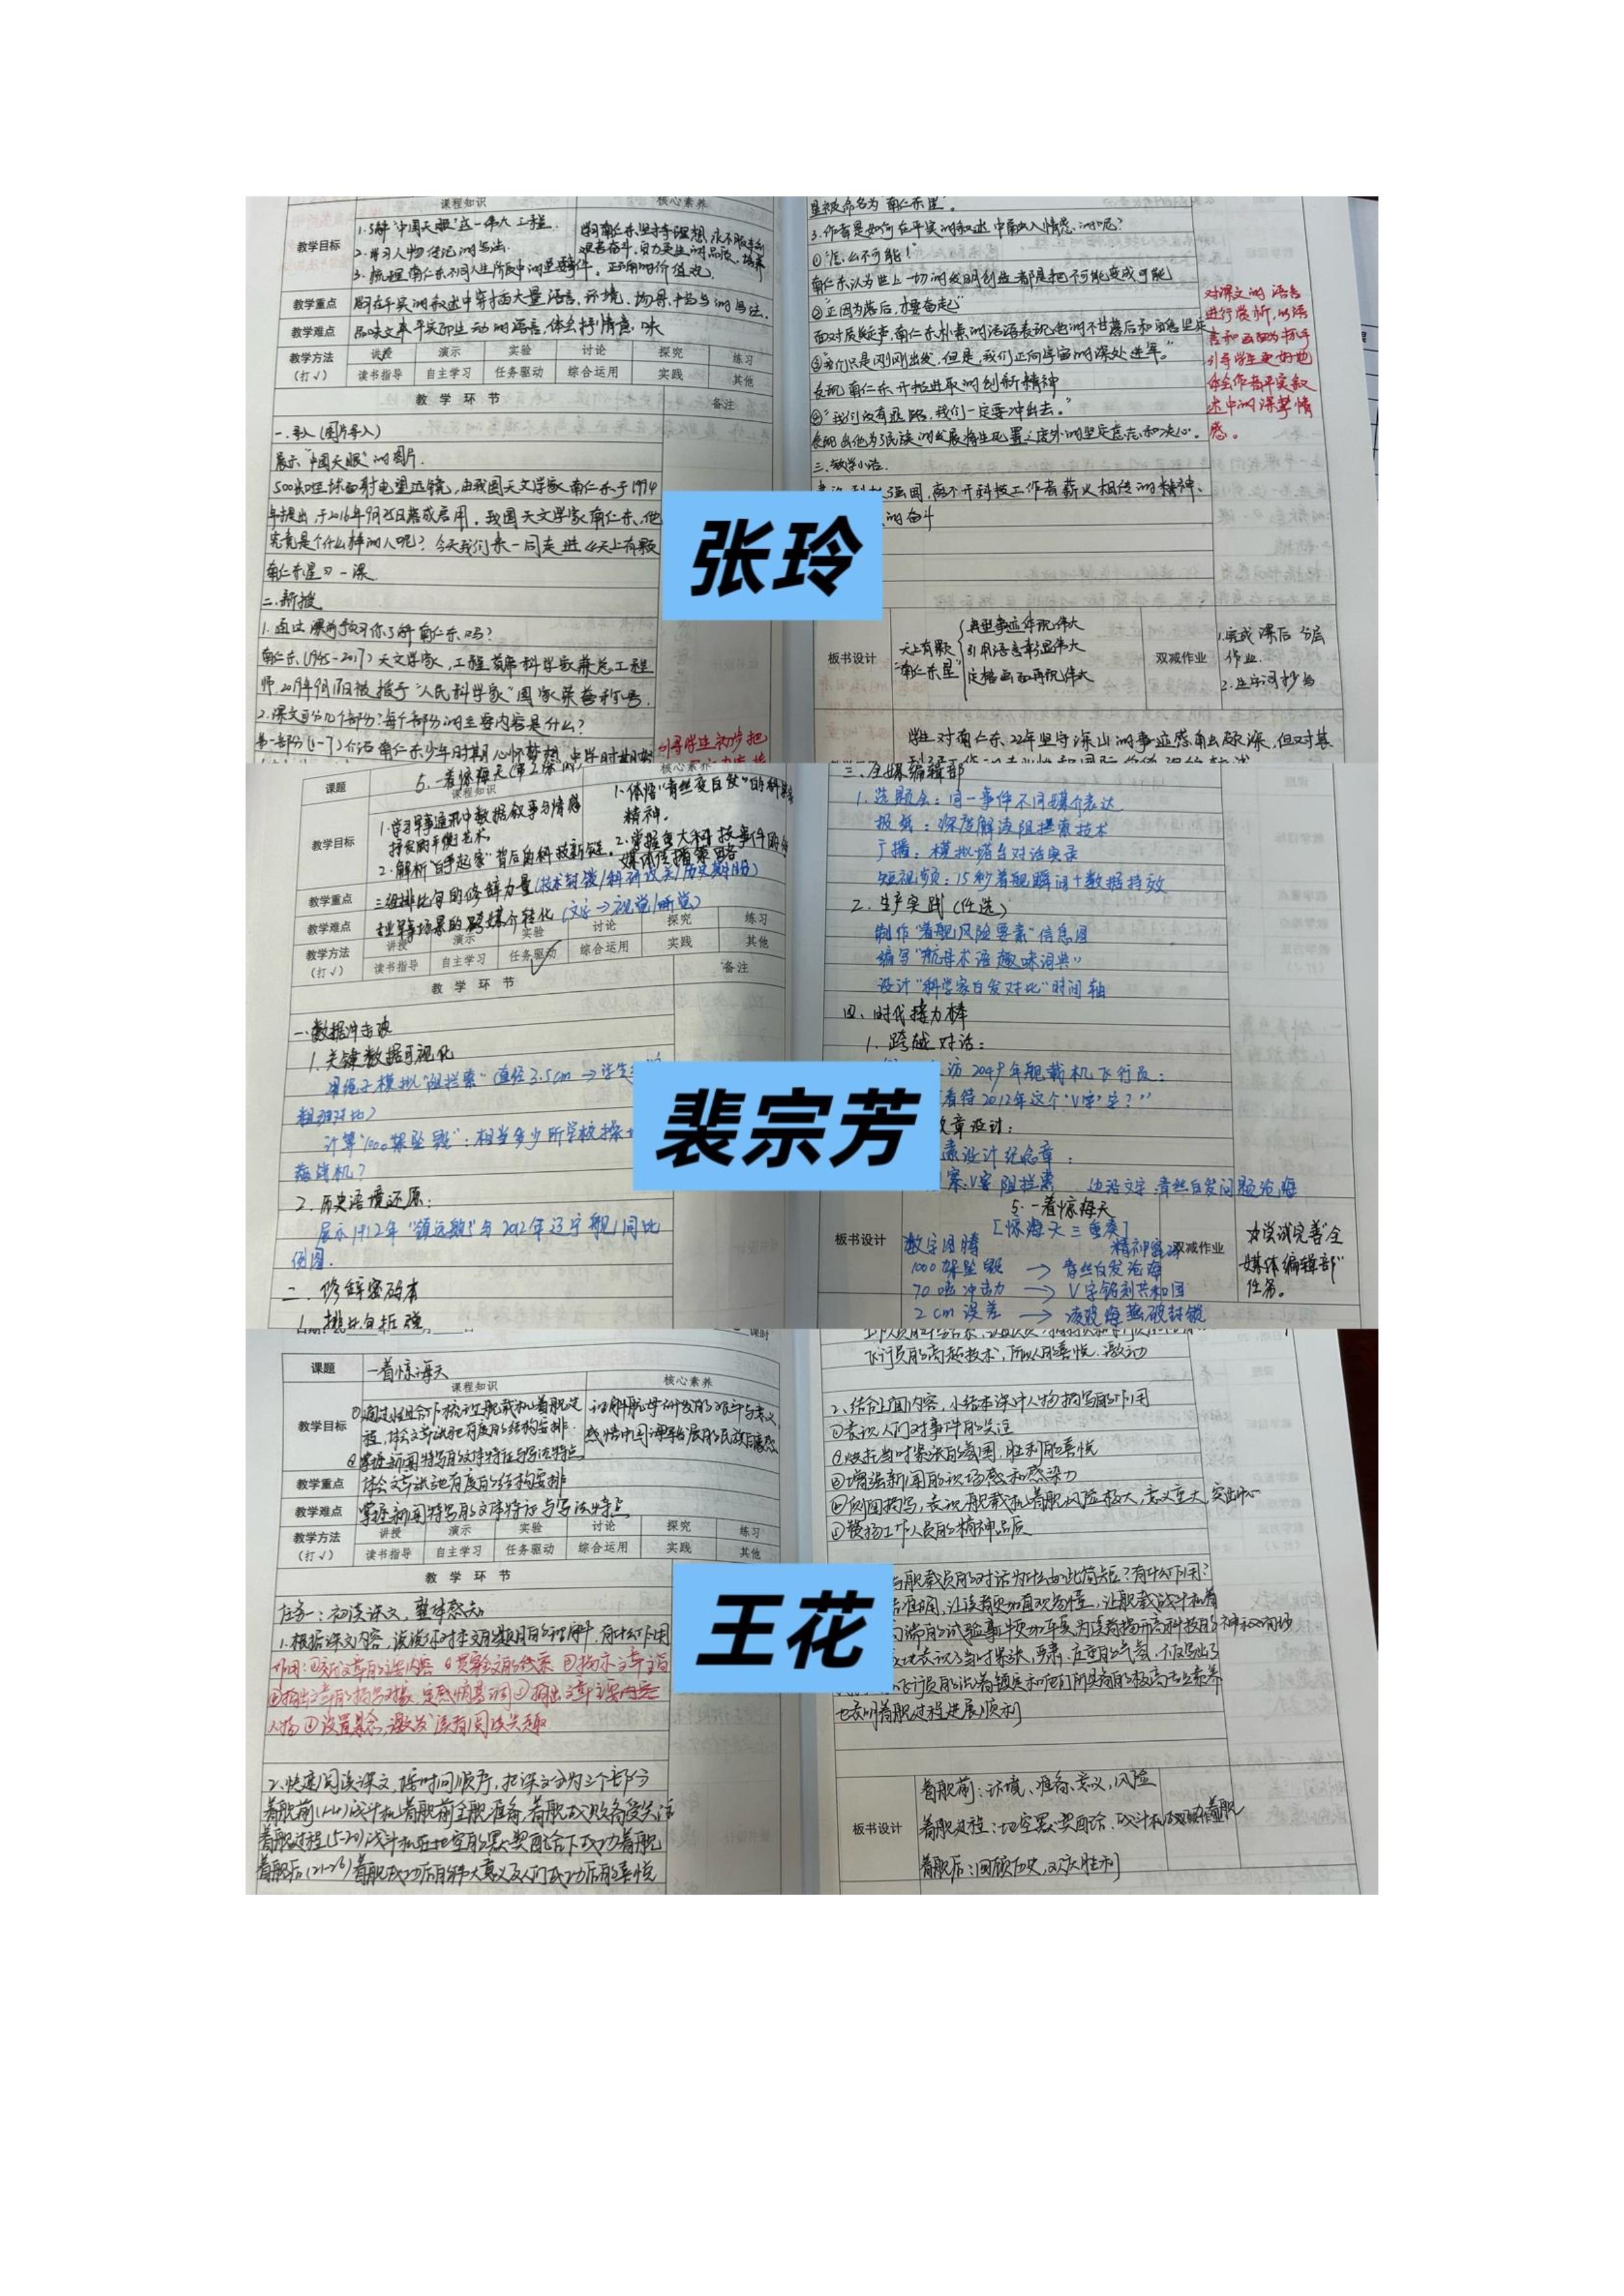 课程知识
核心素养
教学目标
1.了解"中国天眼"这一伟大工程.
2.学习人物传记的写法.
3.梳理南仁东不同人生阶段中的重要事件.
学习南仁东坚持理想,永不服输
艰苦奋斗,自力更生的品质,培养
正确的价值观.
教学重点
教学难点
品味文本平实却生动的语言,体会抒情意味
教学方法
(打√)
讲授 演示 实验 讨论 探究 练习
读书指导 自主学习 任务驱动 综合运用 实践 其他
教 学 环 节
备注
一.导入(图片导入)
展示"中国天眼"的图片.
500米口径球面射电望远镜,由我国天文学家南仁东于1994
年提出,于2016年9月25日落成启用.我国天文学家南仁东,他
究竟是个什么样的人呢?今天我们来一同走进《天上有颗
南仁东星》一课.
二.新授
1.通过课前预习你了解南仁东吗?
南仁东(1945-2017)天文学家,工程首席科学家兼总工程
师.2019年9月17日被授予"人民科学家"国家荣誉称号.
2.课文可分几个部分?每个部分的主要内容是什么?
第一部分(1-7)介绍南仁东少年时期心怀梦想,中学时期
引导学生初步把
星被命名为"南仁东星".
3.作者是如何在平实的叙述中融入情感的呢?
①"怎么不可能!"
南仁东认为世上一切的发明创造都是把不可能变成可能
②"正因为落后,才要奋起"
③"我们只是刚刚出发,但是,我们正向宇宙的深处进军。"
表现南仁东开拓进取的创新精神
④"我们没有退路,我们一定要冲出去。"
表明出他为民族的发展将生死置之度外的坚定意志和决心.
对课文的语言
进行赏析,以语
言和画面为抓手
引导学生更好地
体会作者平实叙
述中的深挚情
感。
三.教学小结.
强国,离不开科技工作者薪火相传的精神、
的奋斗
张玲
板书设计
天上有颗
"南仁东星"
典型事迹体现伟大
引用语言彰显伟大
定格画面再现伟大
双减作业
1.完成课后分层
作业.
2.生字词抄写
学生对南仁东22年坚守深山的事迹感触较深,但对其
课题
5.一着惊海天(第2课时)
课程知识
核心素养
教学目标
1.学习军事通讯中数据叙事与情感
抒发的平衡艺术.
2.解析"白手起家"背后的科技新链.
1.体悟"青丝变白发"的科学家
精神.
2.掌握重大科技事件的
媒体传播策略
教学重点
三组排比句的修辞力量(技术封锁/科研攻关/历史期盼)
教学难点
专业军事场景的跨媒介转化(文字→视觉/听觉)
教学方法
(打√)
讲授 演示 实验 讨论 探究 练习
读书指导 自主学习 任务驱动 综合运用 实践 其他
教 学 环 节
备注
一.数据冲击波
1.关键数据可视化
用绳子模拟"阻拦索"(直径3.5cm→学生
粗细对比)
计算"1000架坠毁":相当多少所学校操
落战机?
2.历史语境还原:
展示1912年"镇远舰"与2012年辽宁舰同比
例图.
二.修辞密码本
1.排比句拓碑
三.全媒编辑部
1.选题会:同一事件不同媒介表达
报纸:深度解读阻拦索技术
广播:模拟塔台对话实录
短视频:15秒着舰瞬间+数据特效
2.生产实践(任选)
制作"着舰风险要素"信息图
编写"航母术语趣味词典"
设计"科学家白发对比"时间轴
四.时代接力棒
1.跨越对话:
访2049年舰载机飞行员:
看待2012年这个"V字"字?"
章设计:
素设计纪念章:
案:V字阻拦索 边沿文字:青丝白发问题沧海
裴宗芳
板书设计
5.一着惊海天
[惊海天三重奏]
数字图腾
1000架坠毁 → 青丝白发沧海
70吨冲击力 → V字铭刻共和国
2cm误差 → 凌波海燕破封锁
双减作业
尝试完善"全
媒体编辑部"
任务。
课时
课题
一着惊海天
课程知识
核心素养
教学目标
①通过小组合作梳理舰载机着舰过
程,体会文章张弛有度的结构安排.
②掌握新闻特写的文体特征与写法特点
了解航母研发的艰辛与意义,
感悟中国海军发展的民族自豪感
教学重点
体会文章张弛有度的结构安排
教学难点
掌握新闻特写的文体特征与写法特点
教学方法
(打√)
讲授 演示 实验 讨论 探究 练习
读书指导 自主学习 任务驱动 综合运用 实践 其他
教 学 环 节
任务一:初读课文,整体感知
1.根据课文内容,谈谈你对本文的题目的理解,有什么作用
作用:①交代文章的主要内容②贯穿全文的线索③揭示文章主旨
人物⑥设置悬念,激发读者阅读兴趣
2.快速阅读课文,按时间顺序,把课文分为三个部分
着舰前(1-4)战斗机着舰前全舰准备,着舰成败备受关注
着舰过程(5-20)战斗机在地空的默契配合下成功着舰
着舰后(21-26)着舰成功后的伟大意义及人们成功后的喜悦
飞行员的高超技术,所以人的喜悦.激动
2.结合上面内容,小结本课中人物描写的作用
①表现人们对事件的关注
②烘托当时紧张的氛围,胜利的喜悦
③增强新闻的现场感和感染力
④侧面描写,表现舰载机着舰风险极大,意义重大,突出中心
⑤赞扬工作人员的精神品质
与舰载员的对话为什么如此简短?有什么作用?
也表明着舰过程进展顺利
王花
板书设计
着舰前:环境、准备、意义,风险
着舰过程:地空默契配合.战斗机成功着舰
着舰后:回顾历史,欢庆胜利